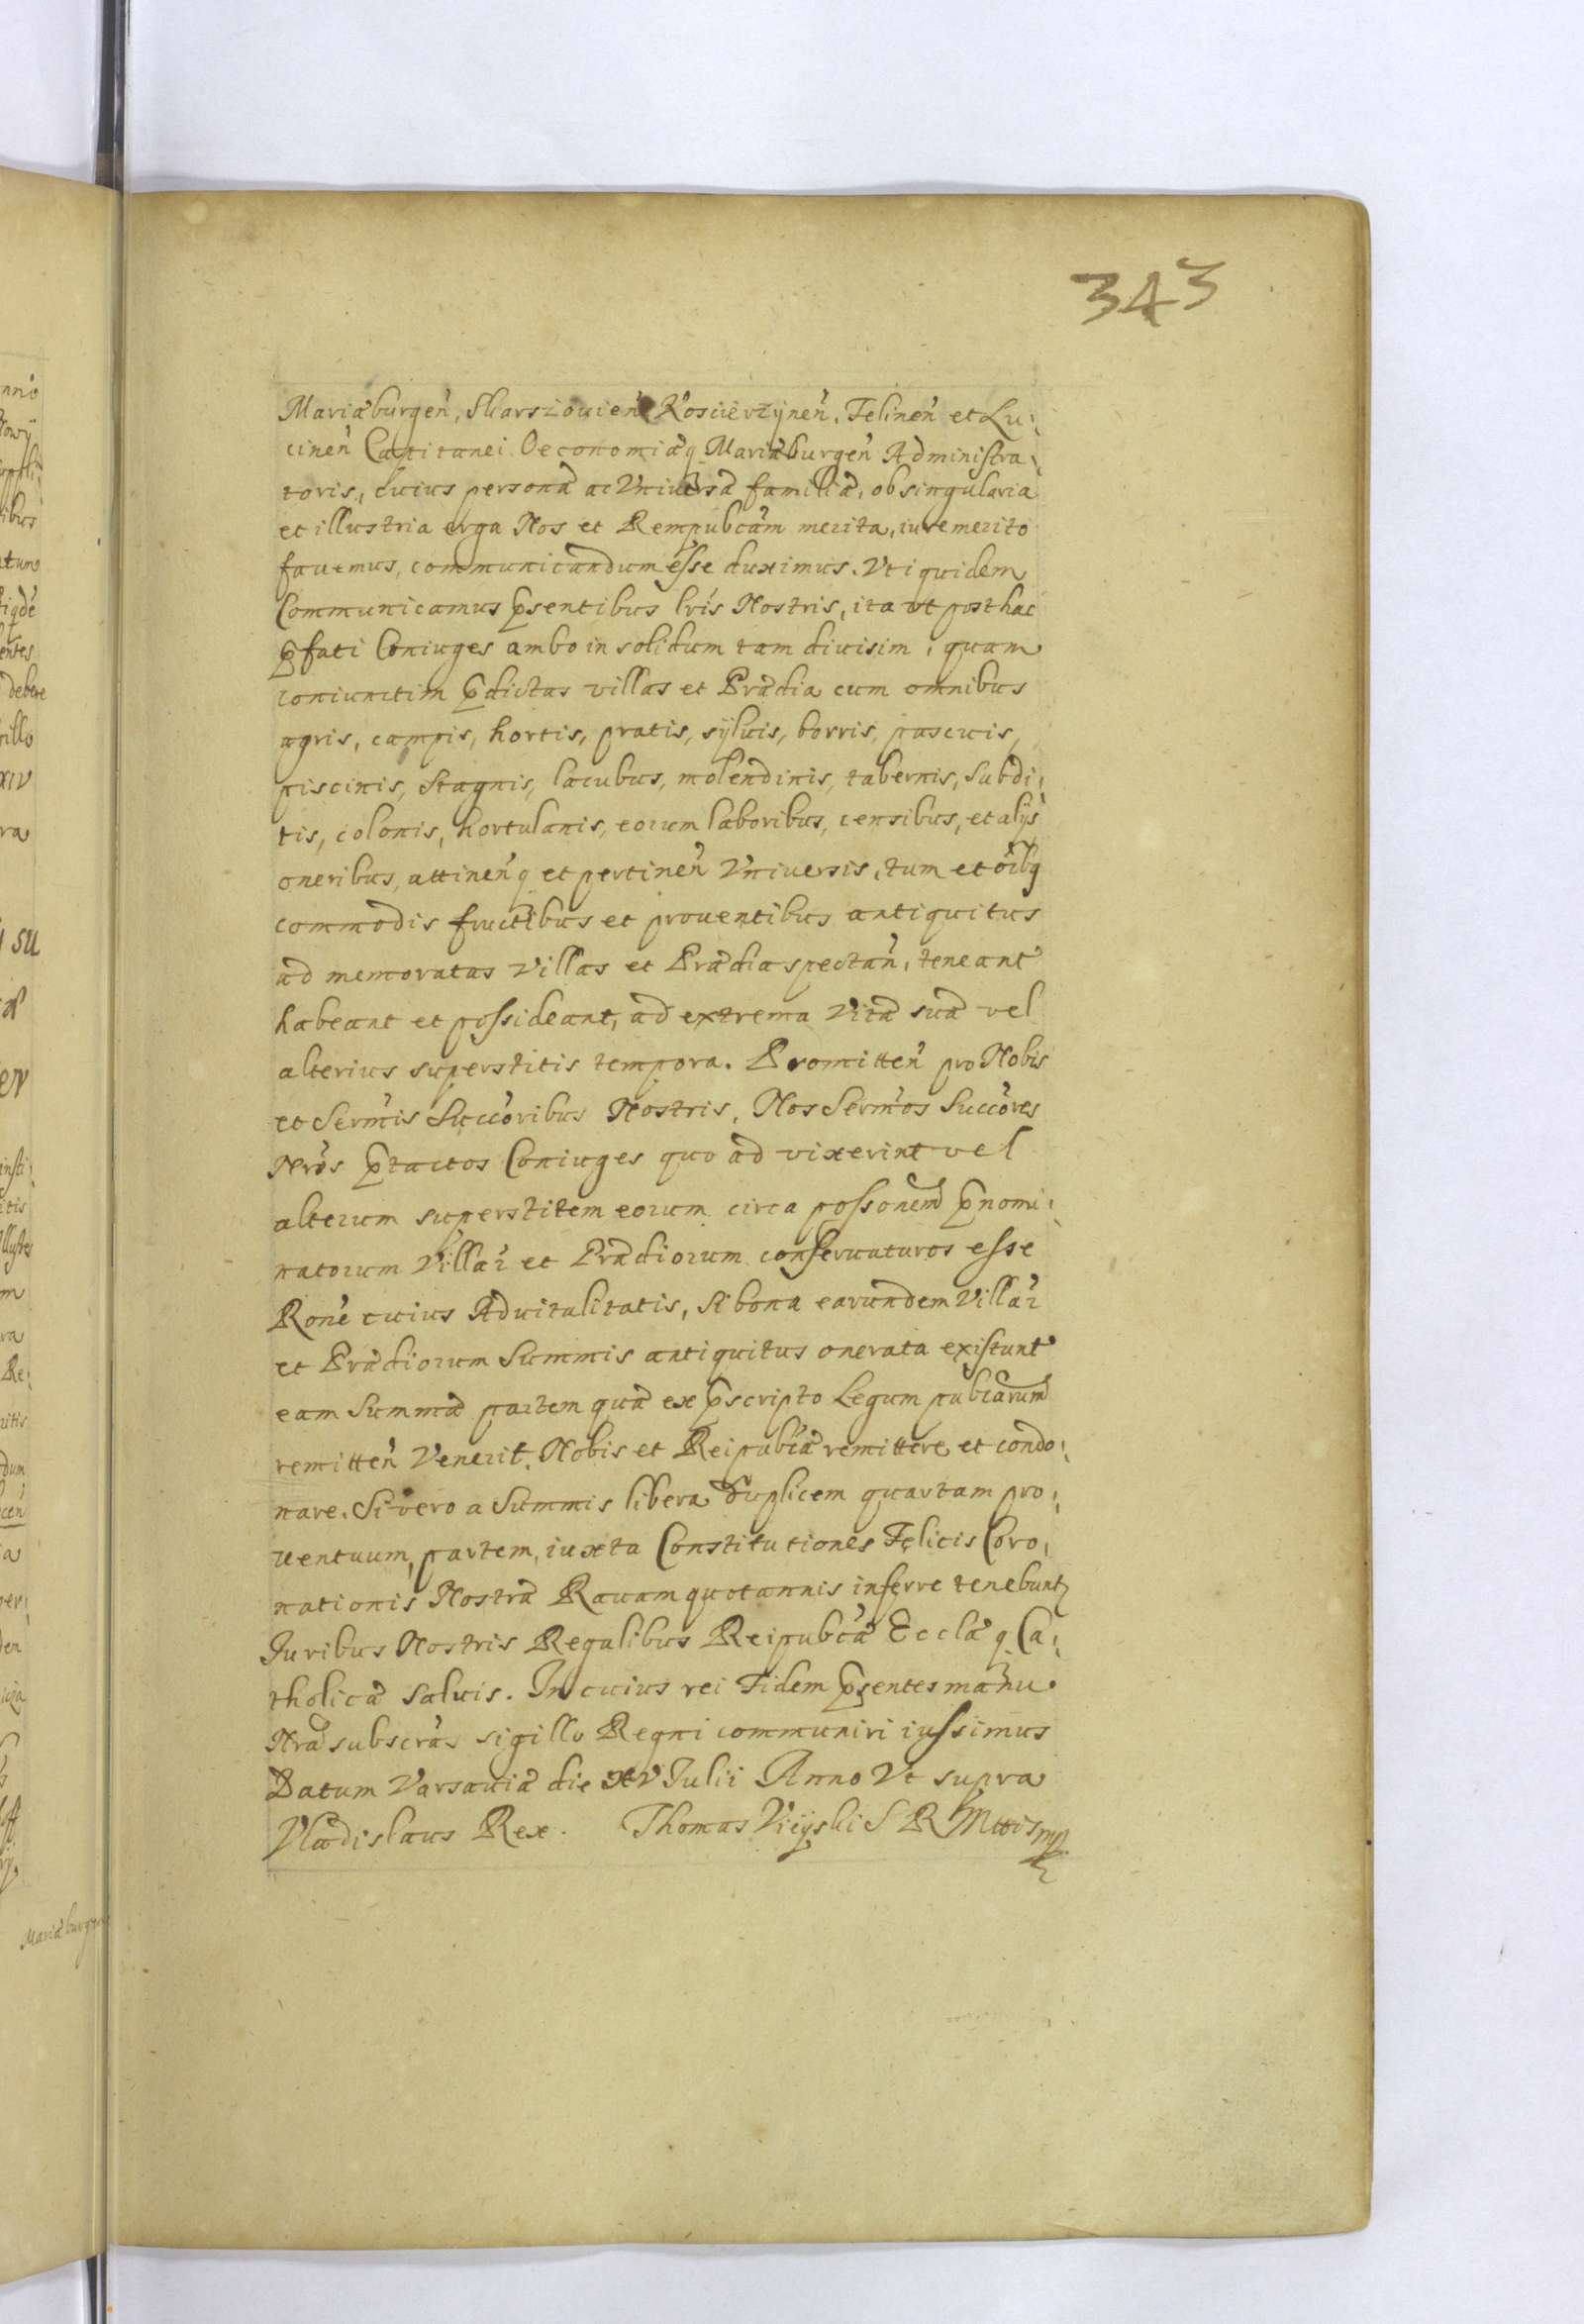 343
Mariæburgeń, Skarszovień Kościerzyneń, Felineń et Lu:
cineń Capitanei Oeconomiæq Mariæburgeń Administra:
toris, cuius personæ ac Vniversæ familiæ, ob singularia
et illustria erga Nos et Rempubcam merita, iure merito
fauemus, communicandum esse duximus. Vti quidem
Communicamus Pʀsentibus lris Nostris, ita ut post hac
Pfati Coniuges ambo in solidum tam diuisim, quam
coniunctim Pdictas villas et Prædia cum omnibus
agris, campis, hortis, pratis, sÿluis, borris, pascuis,
piscinis, Stagnis, lacubus, molendinis, tabernis, Subdi:
tis, colonis, hortulanis, eorum laboribus, censibus, et alÿs
oneribus, attineńq et pertineń Vniversis, tum et oib9
commodis fructibus et prouentibus antiquitus
ad memoratas Villas et Prædia spectań, teneant
habeant et possideant, ad extrema Vitæ suæ vel
alterius superstitis tempora. Promitteń pro Nobis
et Sermis Succoribus Nostris, Nos Sermos Succores
Nros Ptactos Coniuges quo ad vixerint vel
alterum superstitem eorum circa possonem Pnomi:
natorum Villar et Prædiorum conseruaturos esse
Rone cuius Aduitalitatis, Si bona earundem Villar
et Prædiorum Summis antiquitus onerata existunt
eam Summæ partem quæ ex Pscripto Legum pubcarum
remitteń Venerit, Nobis et Reipubcæ remittere et condo:
nare. Si vero a Summis libera duplicem quartam pro:
uentuum partem, iuxta Constitutiones Felicis Coro:
nationis Nostræ Rauam quotannis inferre tenebunt
Iuribus Nostris Regalibus Reipubcæ Ecclæq Ca:
tholicæ saluis. In cuius rei Fidem Psentes manu
Nra subscras sigillo Regni communiri iussimus
Datum Varsauiæ die XV Iulii Anno Vt supra
Vladislaus Rex. Thomas Vieyski S R Mttis mp